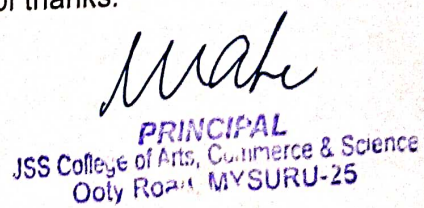 of thanks.
PRINCIPAL
JSS College of Arts, Commerce & Science
Ooty Road, MYSURU-25